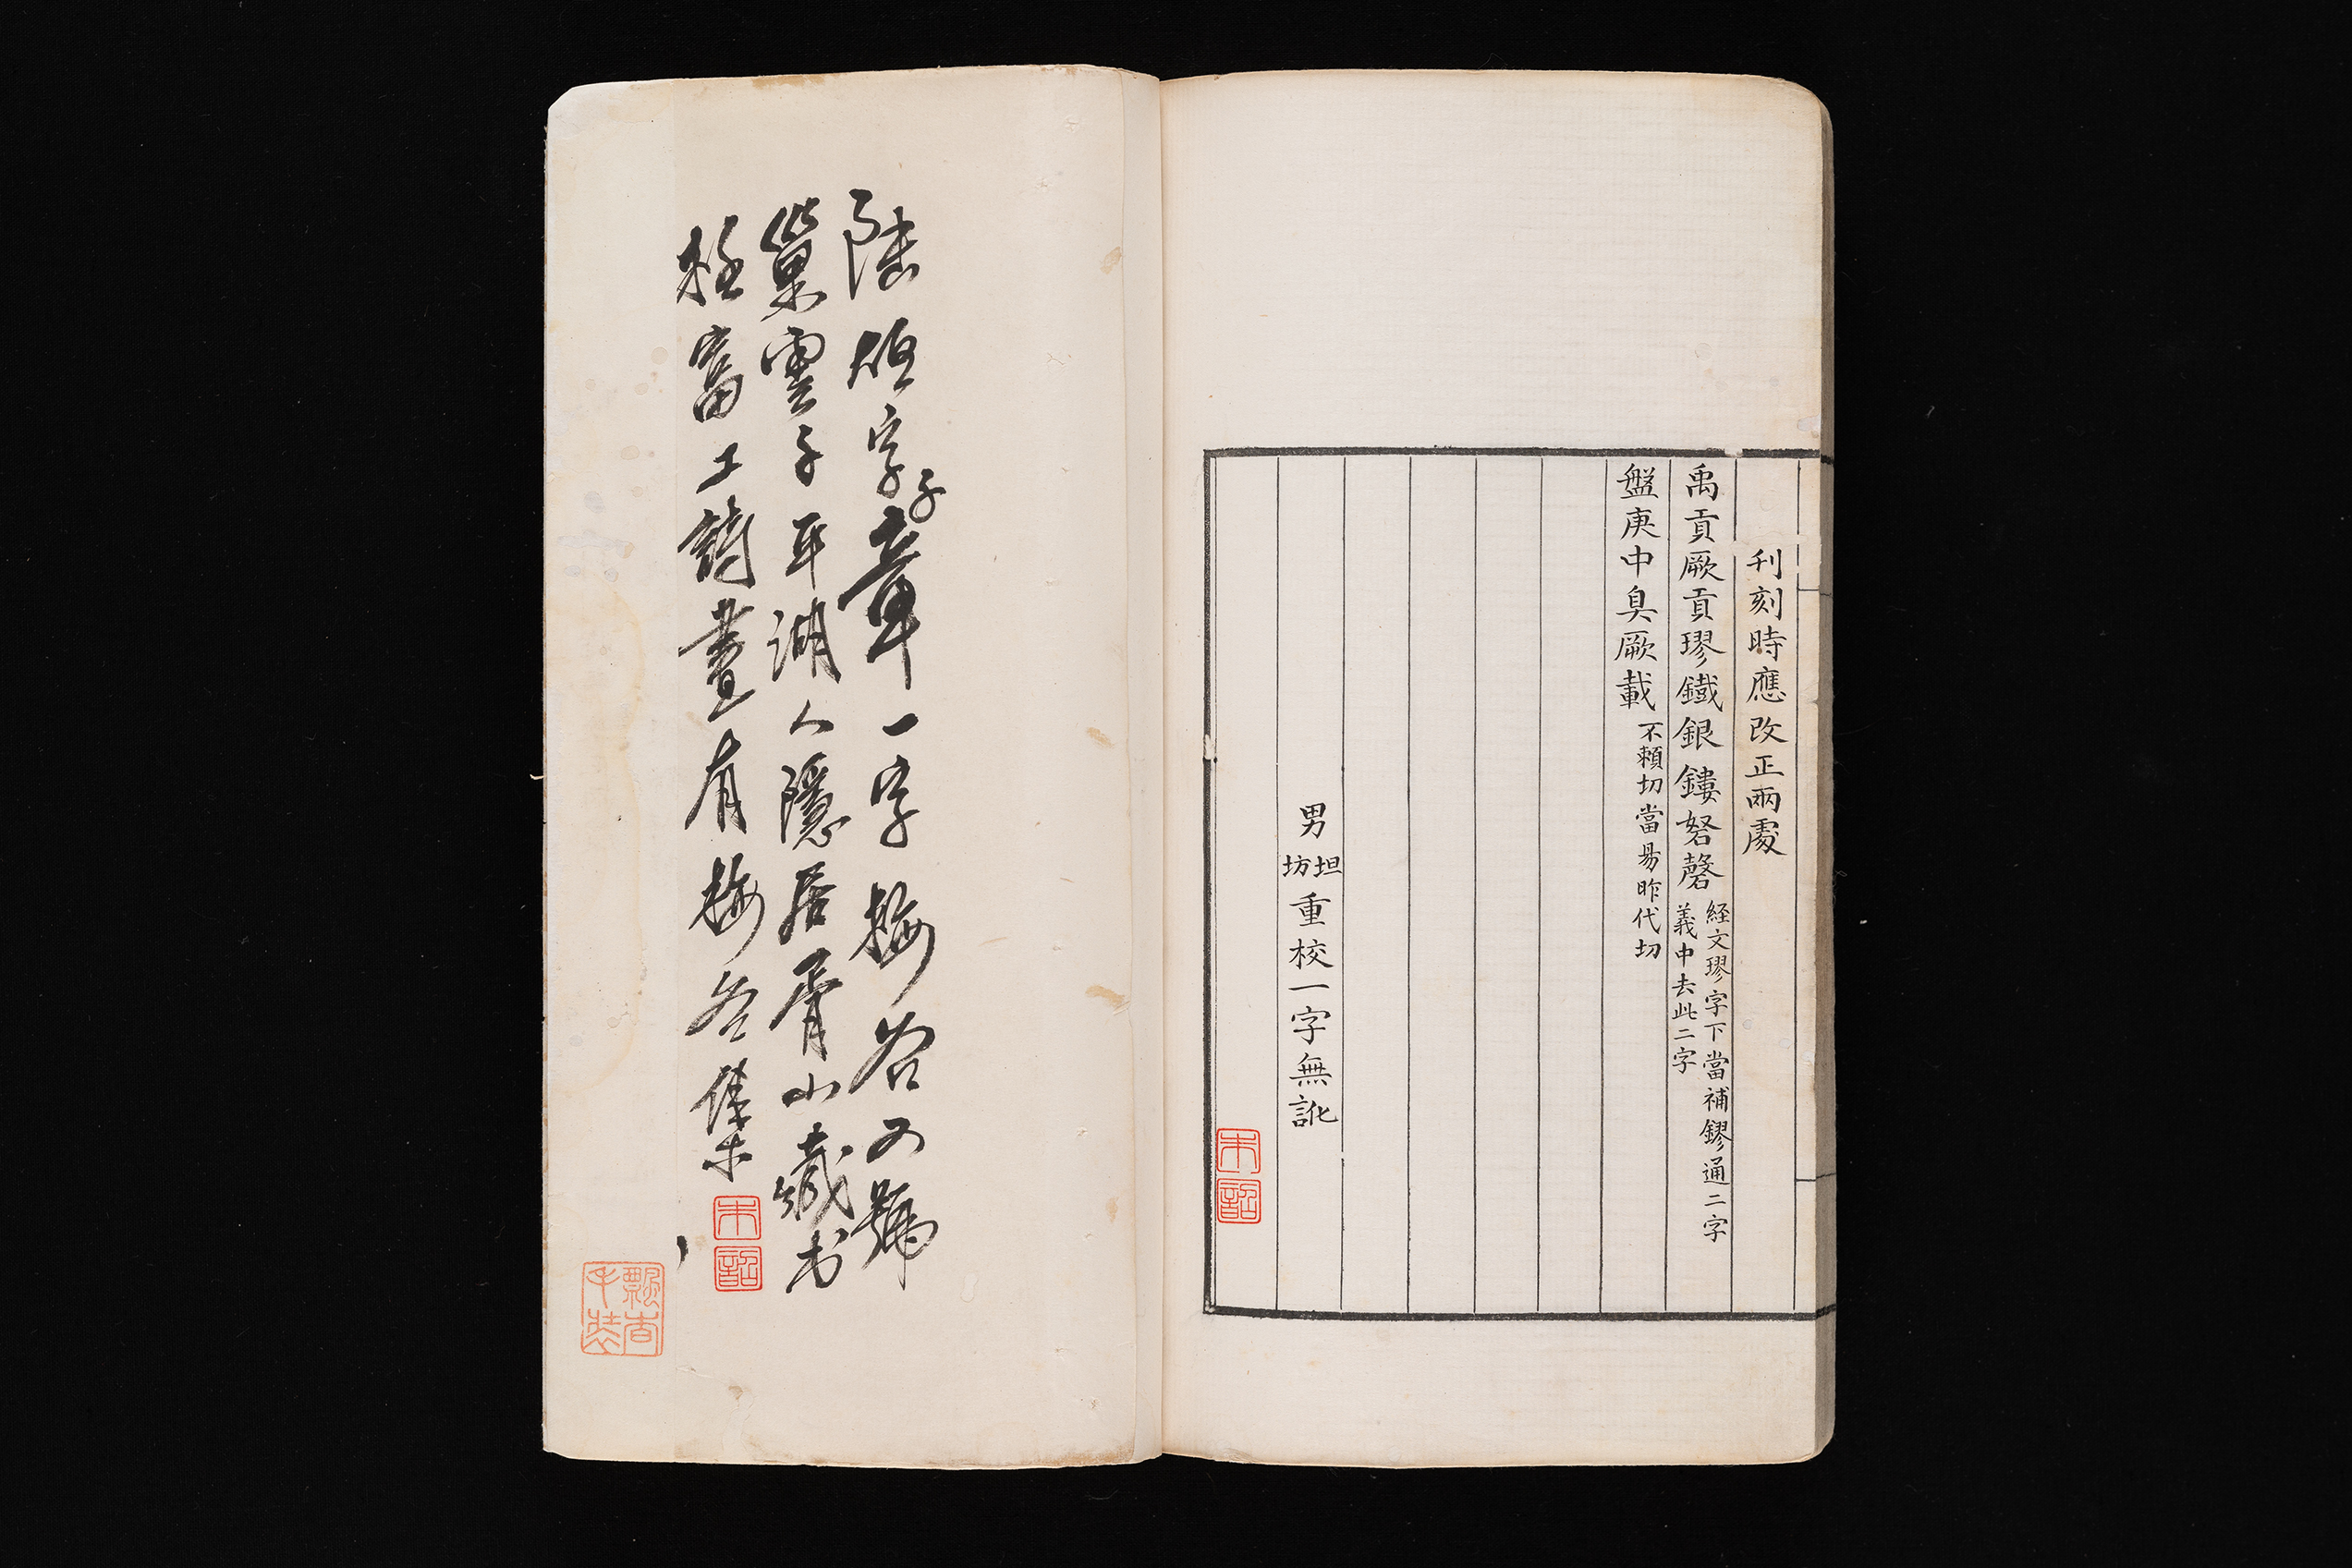 刊刻時應改正兩處
禹貢厥貢璆鐵銀鏤砮磬
経文璆字下當補鏐通二字
義中去此二字
盤庚中臭厥載
不頼切當易昨代切
男
坦
坊
重校一字無訛
陸烜字子章一字梅谷又號
巢雲子平湖人隱居胥山藏书
極富工詩畫有梅谷集